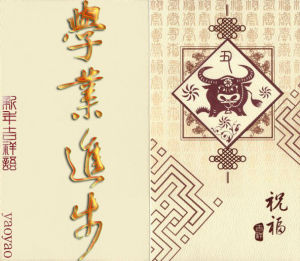 學業進步
新年吉祥語
yaoyao
丑
祝福